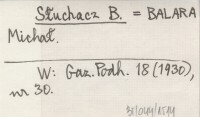 Słuchacz B. = BALARA
Michał.
W: Gaz. Podh. 18 (1930),
nr 30.